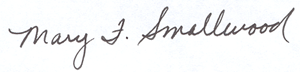 Mary F. Smallwood